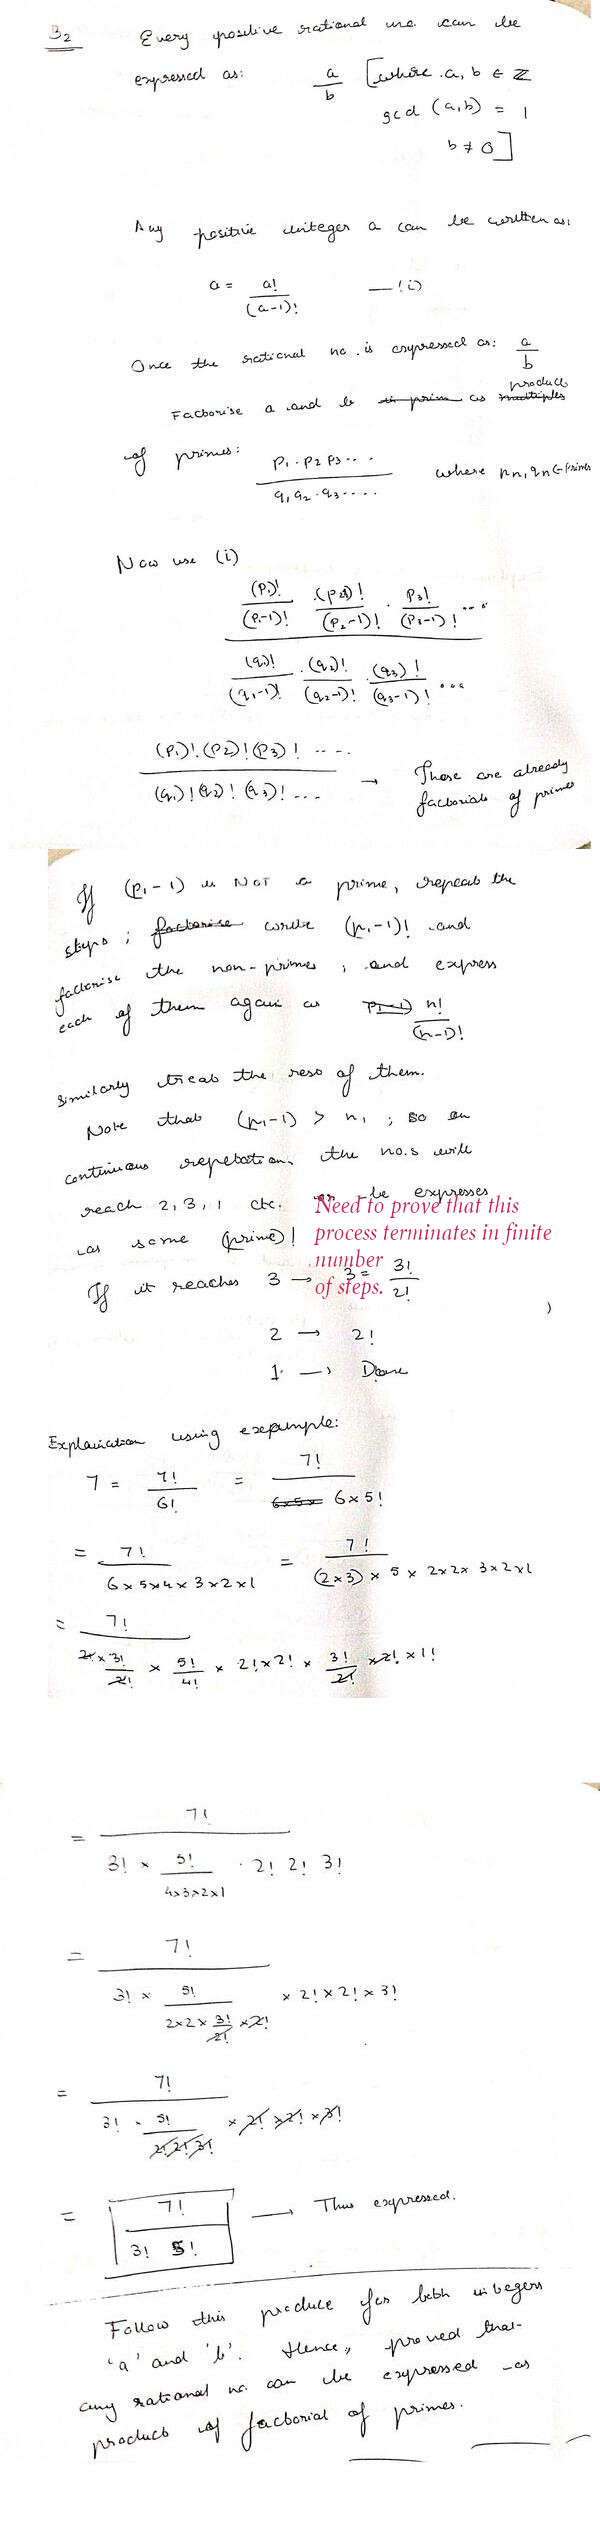 B2 Every positive rational no. can be
expressed as: a/b [where a, b ∈ Z
gcd (a,b) = 1
b ≠ 0]
Any positive integer a can be written as:
a = a!/(a-1)! — (i)
Once the rational no. is expressed as: a/b
Factorise a and b as product
of primes: p1 . p2 p3 .... / q1 q2 . q3 .... where pn, qn ∈ Primes
Now use (i)
(p1)!/(p1-1)! . (p2)!/(p2-1)! . p3!/(p3-1)! ...
(q1)!/(q1-1)! . (q2)!/(q2-1)! . (q3)!/(q3-1)! ...
(p1)! (p2)! (p3)! ..... / (q1)! (q2)! (q3)! ... → These are already
factorials of primes
If (p1-1) is NOT a prime, repeat the
steps ; write (p1-1)! and
factorise the non-primes ; and express
each of them again as n!/(n-1)!
Similarly treat the rest of them.
Note that (p1-1) > n1 ; so on
continuous repetation, the no.s will
reach 2, 3, 1 etc. or be expresses
as some (prime)!
Need to prove that this
process terminates in finite
number
of steps.
If it reaches 3 → 3 = 3!/2!
2 → 2!
1 → Done
Explaination using example:
7 = 7!/6! = 7!/6 x 5!
= 7!/6 x 5 x 4 x 3 x 2 x 1 = 7!/(2 x 3) x 5 x 2 x 2 x 3 x 2 x 1
= 7!/2! x 3!/2! x 5!/4! x 2! x 2! x 3!/2! x 2! x 1!
= 7!/3! x 5!/4x3x2x1 . 2! 2! 3!
= 7!/3! x 5!/2x2x 3!/2! x 2! x 2! x 2! x 3!
= 7!/3! . 5!/2! 2! 3! x 2! x 2! x 3!
= 7!/3! 5! → Thus expressed.
Follow this produce for both integers
'a' and 'b'. Hence, proved that
any rational no. can be expressed as
products of factorial of primes.